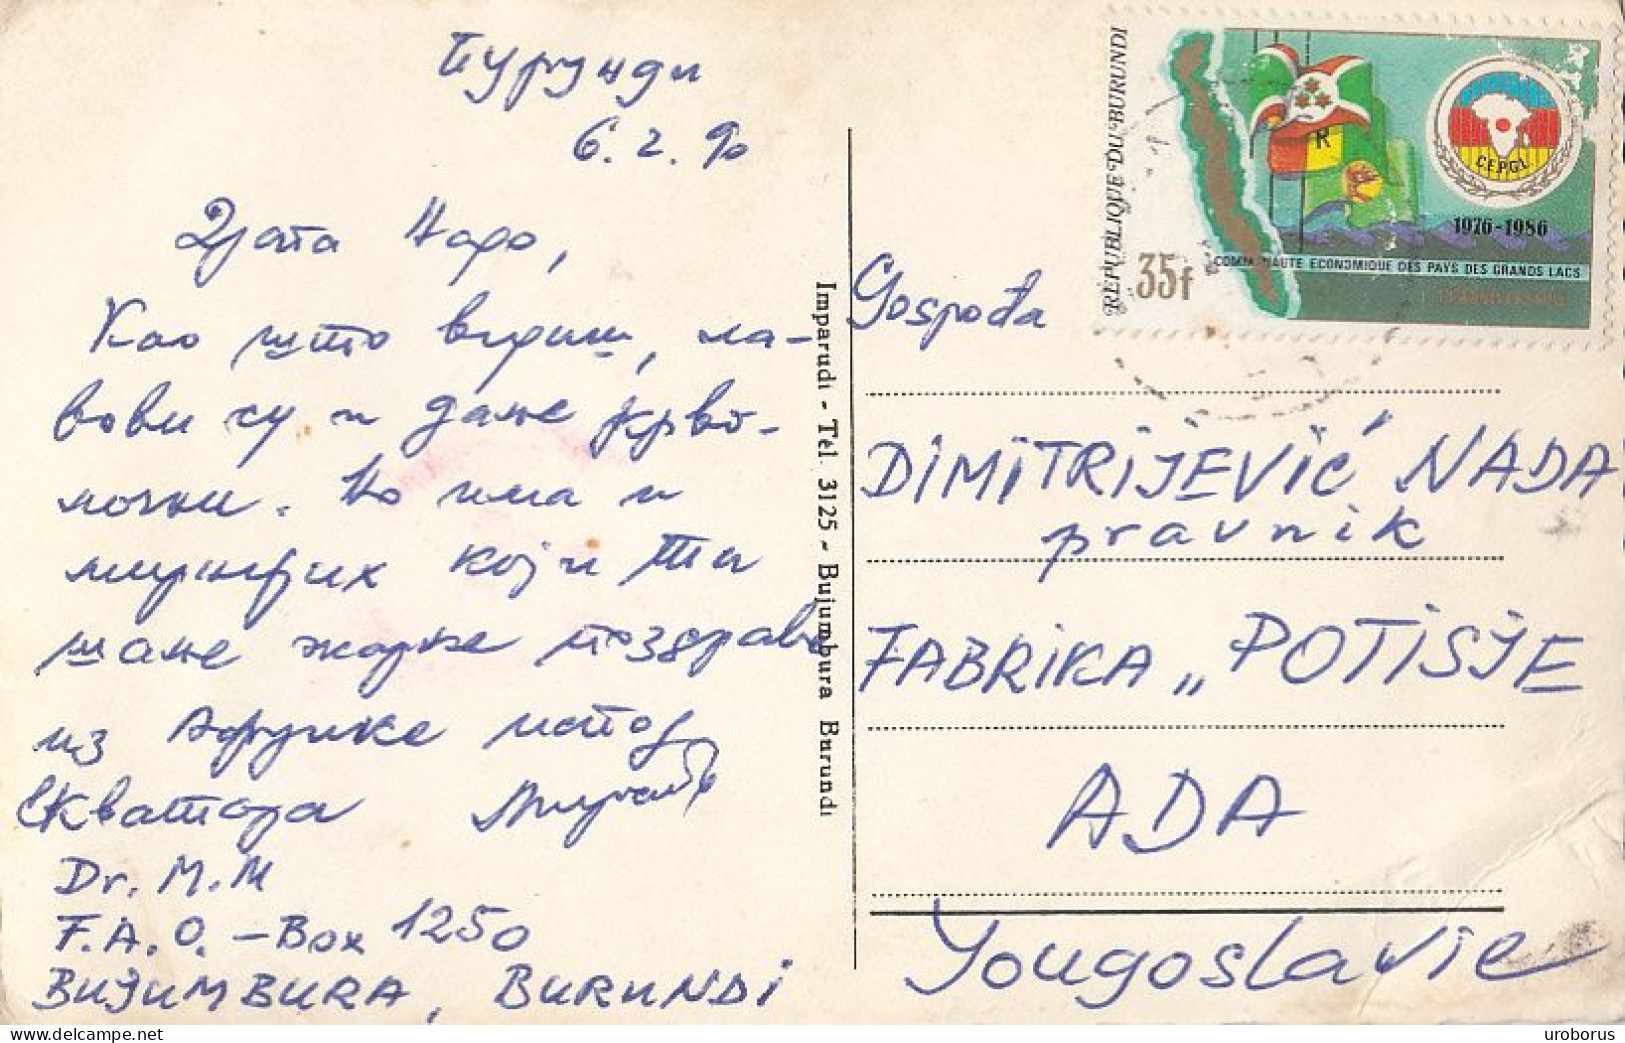 Бурунди
6. 2. 90
Драга Надо,
Као што видиш, ла-
вови су и даље крво-
лочни. Но има и
мирнијих који Ти
шаље жарке поздраве
из Африке испод
Екватора
Dr. M. M
F.A.O. - Box 1250
BUJUMBURA, BURUNDI
Imparudi - Tél. 3125 - Bujumbura Burundi
REPUBLIQUE DU BURUNDI
35F
R
C.E.P.G.L.
1976-1986
COMMUNAUTE ECONOMIQUE DES PAYS DES GRANDS LACS
Gospođa
DIMITRIJEVIĆ NADA
pravnik
FABRIKA „POTISJE
ADA
Yougoslavie
uroborus